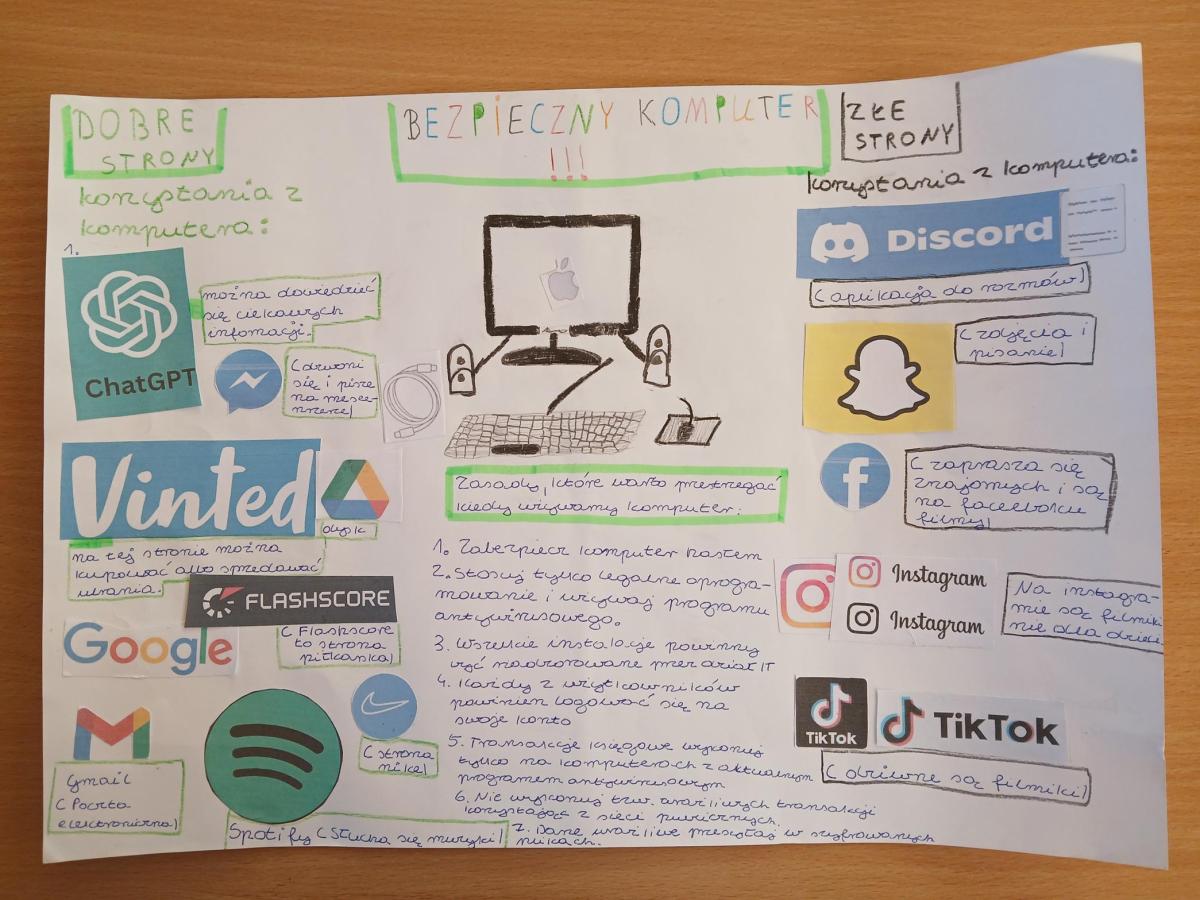 DOBRE
STRONY
korzystania z
komputera:
1.
ChatGPT
można dowiedzieć
się ciekawych
infomacji.
( dzwoni
się i pisze
na messe-
nrzerze)
Vinted
dysk
na tej stronie można
kupować albo sprzedawać
ubrania.
FLASHSCORE
( Flashscore
to strona
piłkarska)
Google
Gmail
( Poczta
elektroniczna)
( strona
nike)
Spotify ( Słucha się muzyki)
BEZPIECZNY KOMPUTER
!!!
Zasady, które warto przestrzegać
kiedy używamy komputer:
1. Zabezpiecz komputer hasłem
2. Stosuj tylko legalne oprogra-
mowanie i używaj programu
antywirusowego.
3. Wszelkie instalacje powinny
być nadzorowane przez dział IT
4. Każdy z użytkowników
powinien logować się na
swoje konto
5. Transakcje księgowe wykonuj
tylko na komputerach z aktualnym
programem antywirusowym
6. Nie wykonuj tzw. wrażliwych transakcji
korzystając z sieci publicznych.
7. Dane wrażliwe przesyłaj w szyfrowanych
plikach.
ZŁE
STRONY
korzystania z komputera:
Discord
( aplikacja do rozmów)
( zdjęcia i
pisanie)
( zaprasza się
znajomych i są
na facebooku
filmy)
Instagram
Instagram
Na instagra-
mie są filmiki
nie dla dzieci
TikTok
TikTok
( dziwne są filmiki)